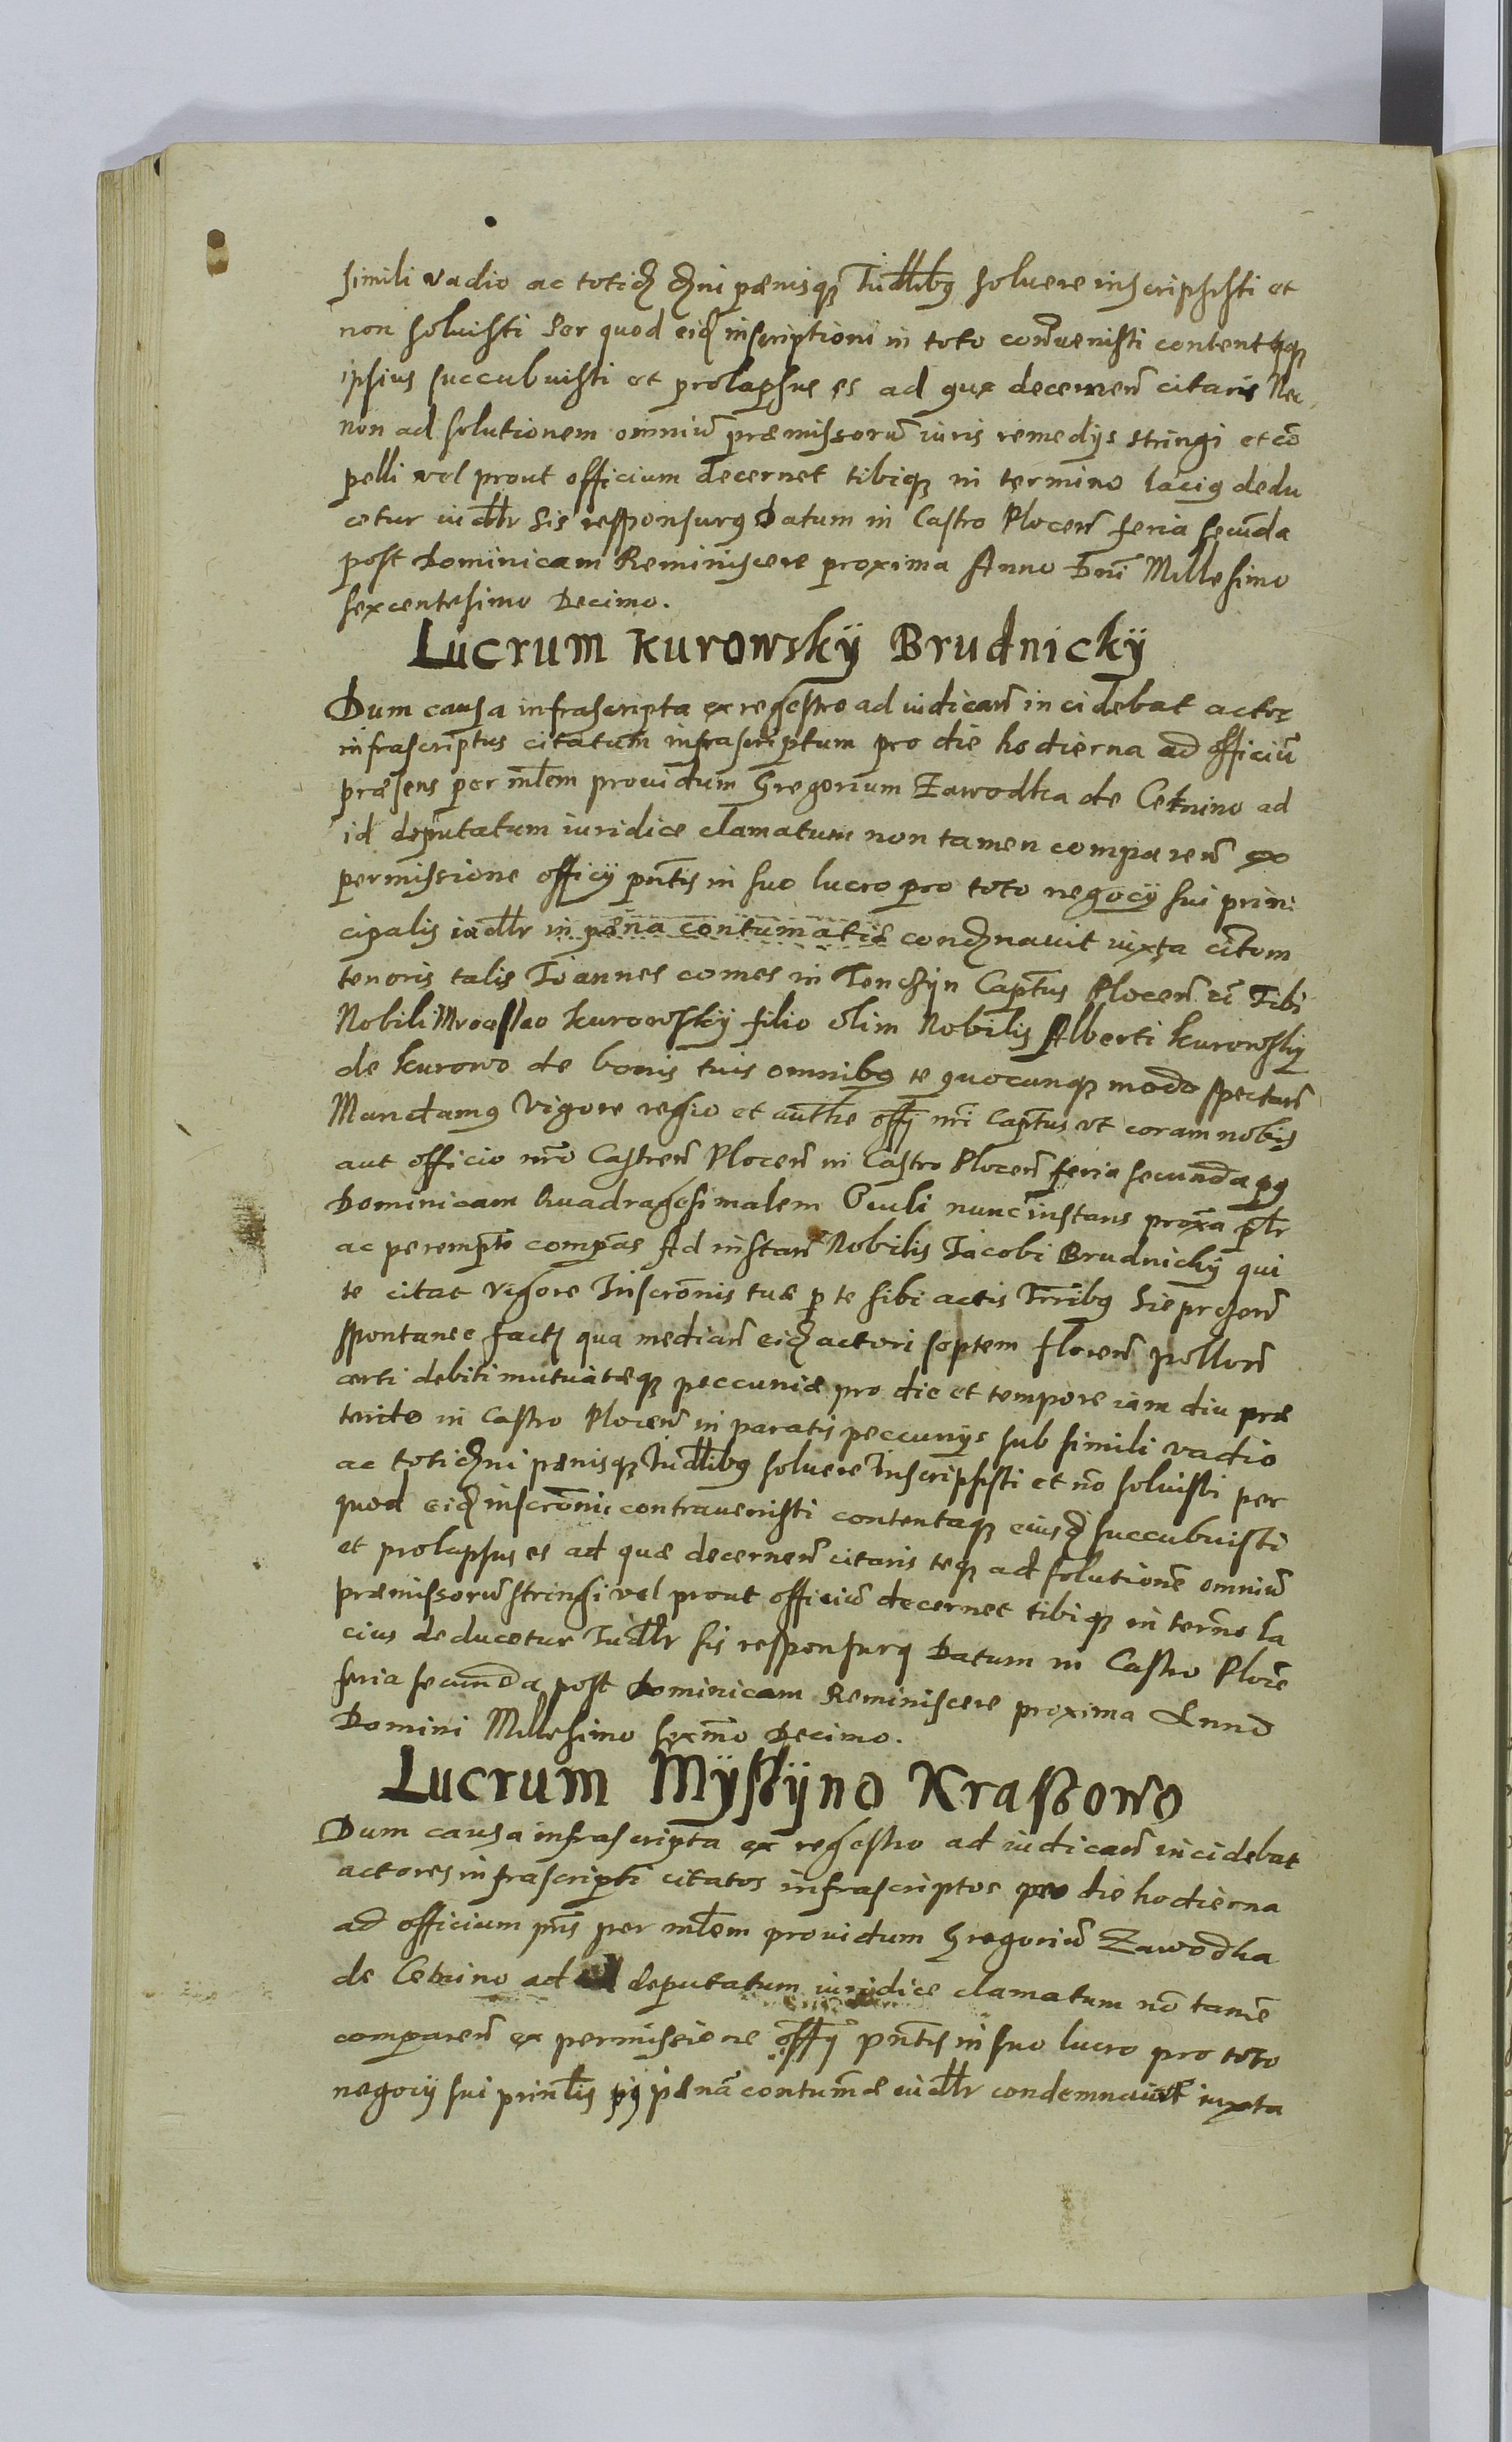 simili vadio ac totid dni pænisq Iudlibg soluere inscripsisti et
non soluisti Per quod eid inscriptioni in toto conuenisti contentisq
ipsius succubuisti et prolapsus es ad quæ decernen citaris Nec
non ad solutionem omniū præmissorū iuris remedys stringi et cō
pelli vel prout officium decernet tibiq in termino lacig dedu
cetur iudlr sis responsurg Datum in Castro Plocen feria secūda
post Dominicam Reminiscere proxima Anno Dni Millesimo
sexcentesimo Decimo.
Lucrum Kurowskÿ Brudnickÿ
Dum causa infrascripta ex regestro ad iudican incidebat actor
infrascriptus citatum infrascriptum pro die hodierna ad officiū
præsens per mlem prouidum Gregorium Zawodka de Cetnino ad
id deputatum iuridice clamatum non tamen comparen ex
permissione officy pntis in suo lucro pro toto negocÿ sui prin
cipalis iudlr in pæna contumatiæ condnauit iuxta citom
tenoris talis Joannes comes in Tenczÿn Captus Plocen ec Tibi
Nobili Mroczslao Kurowskÿ filio olim Nobilis Alberti Kurowskÿ
de Kurowo de bonis tuis omnibg te quocunq modo spectan
Mandamg Vigore regio et authe offÿ nri Captus vt coram nobis
aut officio nro Castren Plocen in Castro Plocen feria secunda pg
Dominicam Quadragesimalem Oculi nunc instans proxa plr
ac perempte compas Ad instan Nobilis Jacobi Brudnickÿ qui
te citat vigore Inscronis tuæ p te sibi actis Trribg Sieprczen
spontanee fact qua median eid actori septem floren pollon
certi debiti mutuatæq peccuniæ pro die et tempore iam diu præ
terito in Castro Plocen in paratis peccunÿs sub simili vadio
ac totid dni pænisq Iudlibg soluere Inscripsisti et nō soluisti per
quod eid inscroni contrauenisti contentaq eiusd succubuisti
et prolapsus es ad quæ decernen citaris teq ad solutionē omniū
præmissorū stringi vel prout officiū decernet tibiq in termo la
cius deducetur Iudlr sis responsurg Datum in Castro Plocē
feria secunda post Dominicam Reminiscere proxima Anno
Domini Millesimo sexmo Decimo.
Lucrum Mÿszÿno Kraszowo
Dum causa infrascripta ex regestro ad iudican incidebat
actores infrascripti citatos infrascriptos pro die hodierna
ad officium pns per mlem prouidum Gregoriū Zawodka
de Cetnino ad deputatum iuridice clamatum nō tamē
comparen ex permissione offÿ pntis in suo lucro pro toto
negocÿ sui prinlis pænā contumæ iudlr condemnauit iuxta